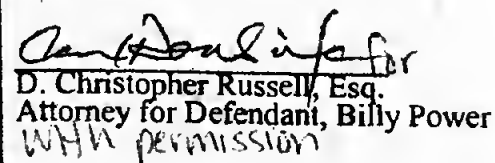 for
D. Christopher Russell, Esq.
Attorney for Defendant, Billy Power
With permission